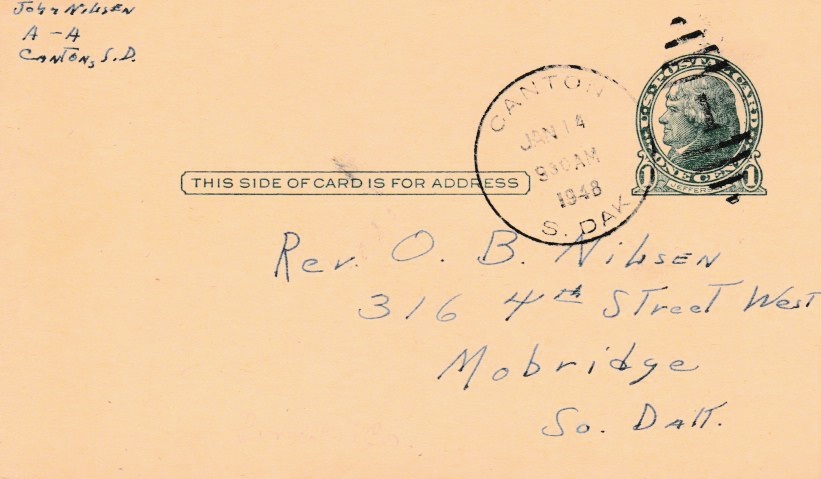 John Nilsen
A-A
Canton, S.D.
U.S. POSTAL CARD
ONE CENT
1 JEFFERSON 1
CANTON
JAN 14
930AM
1948
S. DAK
THIS SIDE OF CARD IS FOR ADDRESS
Rev. O. B. Nilsen
316 4th Street West
Mobridge
So. Dak.